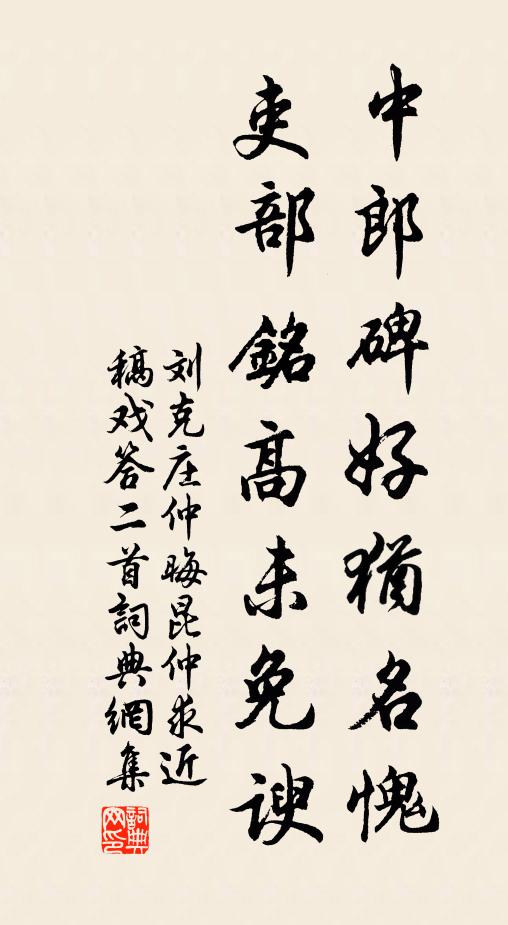 中郎碑好猶名愧
吏部銘高未免諛
刘克庄仲晦昆仲求近
稿戏答二首詞典網集
詞典网印